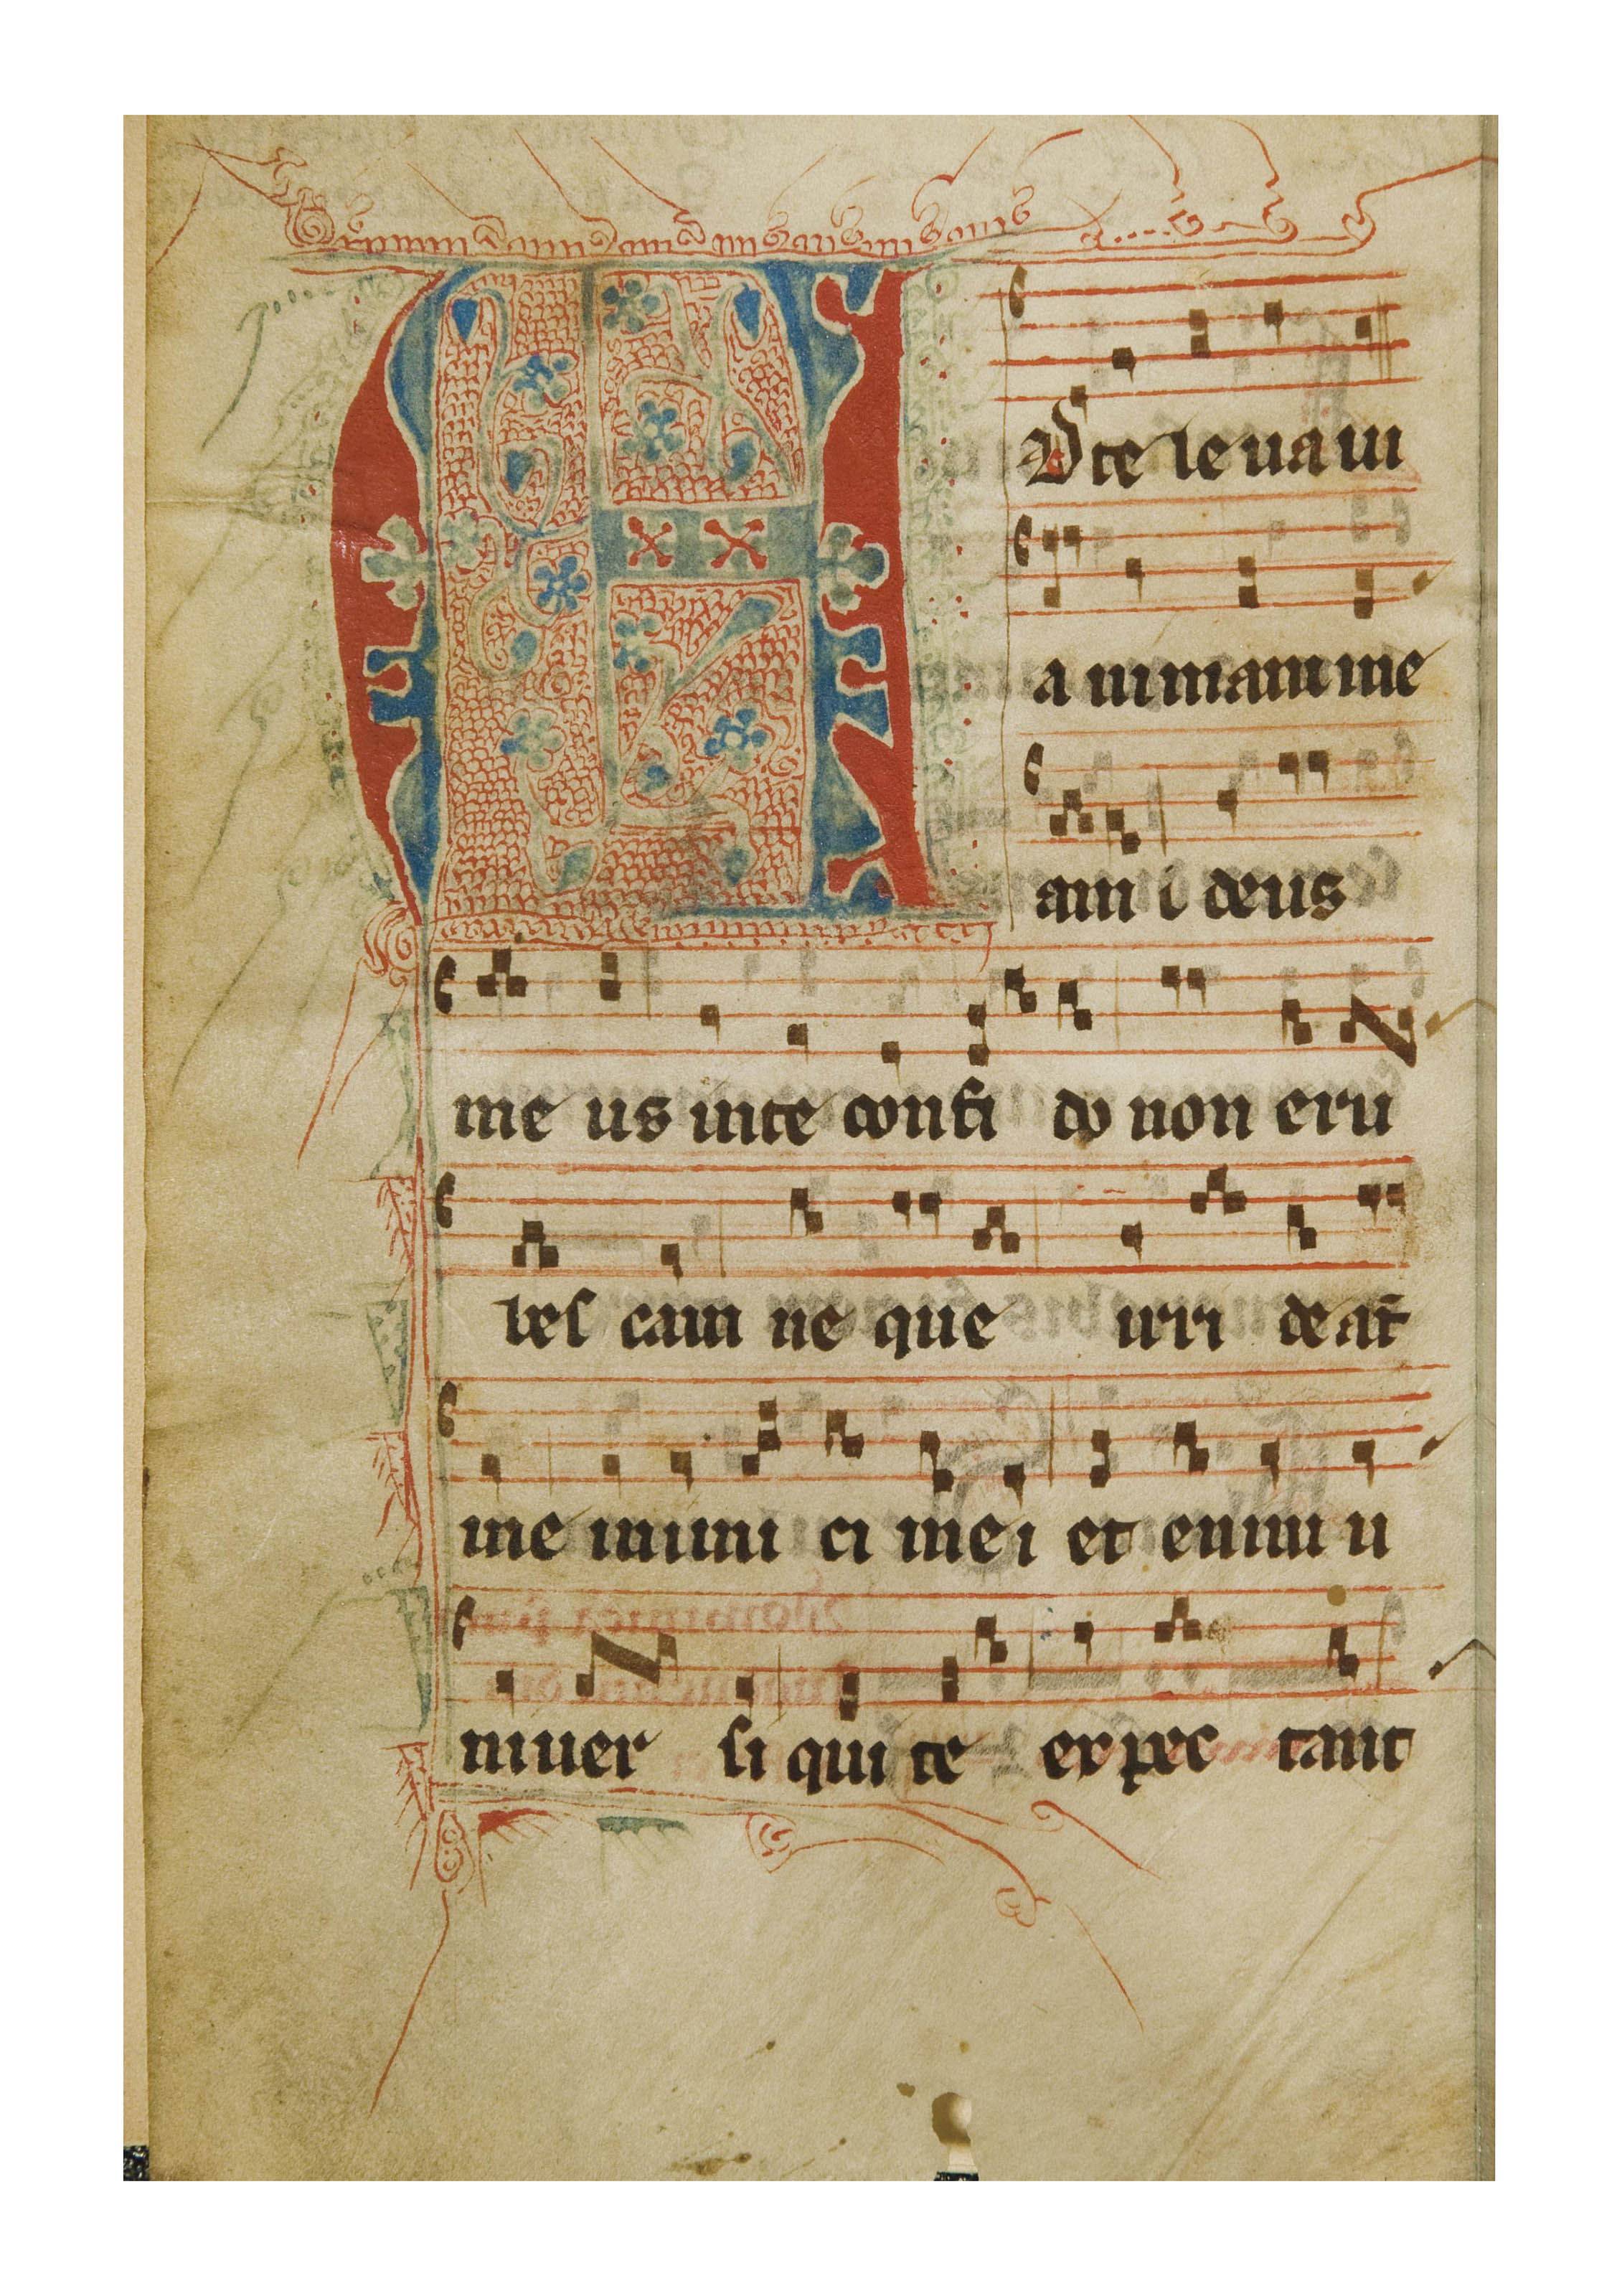 AD te leua ui
a nimam me
am i deus
me us inte confi do non eru
bes cam ne que irri deāt
me inimi ci mei et enim u
niuer si qui te expec tant